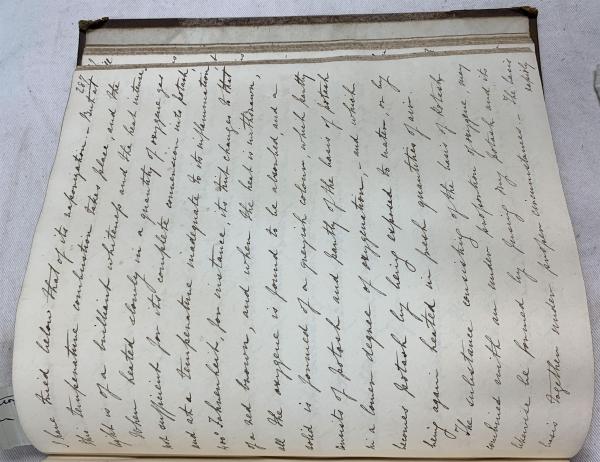 287
I have tried below that of its vaporization. — But at
this temperature combustion takes place and the
light is of a brilliant whiteness and the heat intense
When heated slowly in a quantity of oxygene gas
not sufficient for its complete conversion into potash
and at a temperature inadequate to its inflammation
400° Fahrenheit, for instance, its tint changes to that
of a red brown, and when the heat is withdrawn,
all the oxygene is found to be absorbed and a
solid is formed of a greyish colour which partly
consists of potash and partly of the basis of potash
in a lower degree of oxygenation — and which
becomes potash by being exposed to water, or by
being again heated in fresh quantities of air.
The substance consisting of the basis of potash
combined with an under proportion of oxygene, may
likewise be formed by fusing dry potash and its
basis together under proper circumstances. — The basis
rapidly